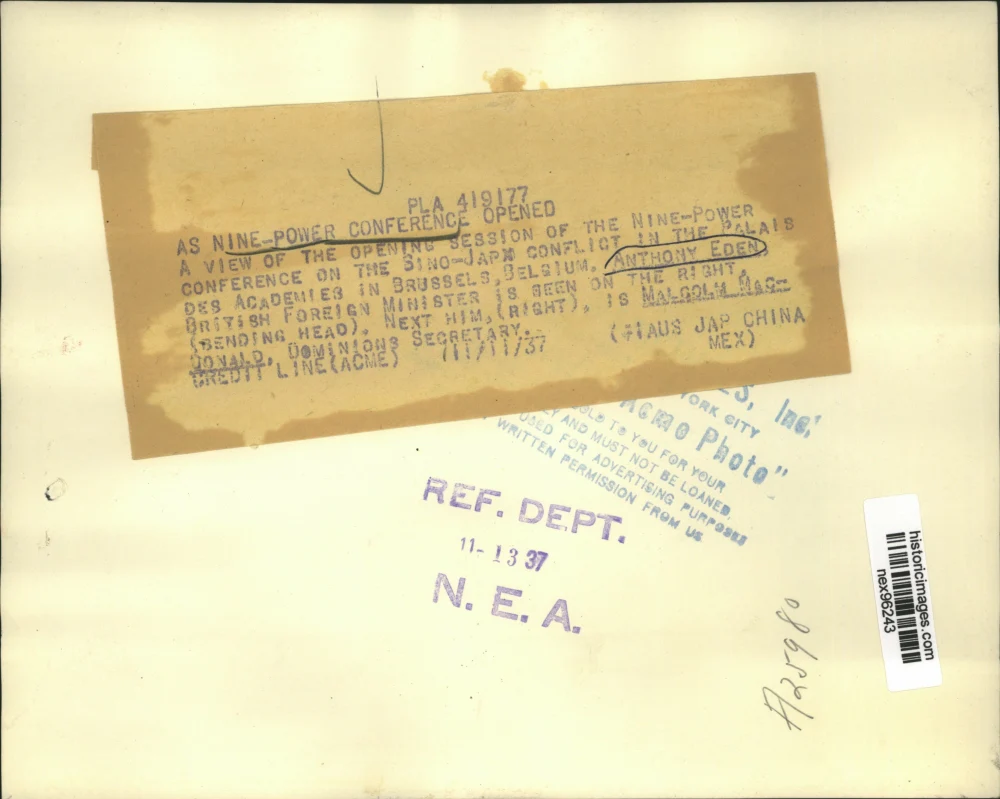 PLA 419177
AS NINE-POWER CONFERENCE OPENED
A VIEW OF THE OPENING SESSION OF THE NINE-POWER
CONFERENCE ON THE SINO-JAPX CONFLICT IN THE PALAIS
DES ACADEMIES IN BRUSSELS, BELGIUM. ANTHONY EDEN,
BRITISH FOREIGN MINISTER IS SEEN ON THE RIGHT,
(BENDING HEAD). NEXT HIM, (RIGHT), IS MALCOLM MAC-
DONALD, DOMINIONS SECRETARY.
CREDIT LINE (ACME) (11/11/37 (#1AUS JAP CHINA
MEX)
ES, Inc.
YORK CITY
Acme Photo"
SOLD TO YOU FOR YOUR
LY AND MUST NOT BE LOANED.
USED FOR ADVERTISING PURPOSES
WRITTEN PERMISSION FROM US
REF. DEPT.
11-13 37
N. E. A.
historicimages.com
nex96243
A25980